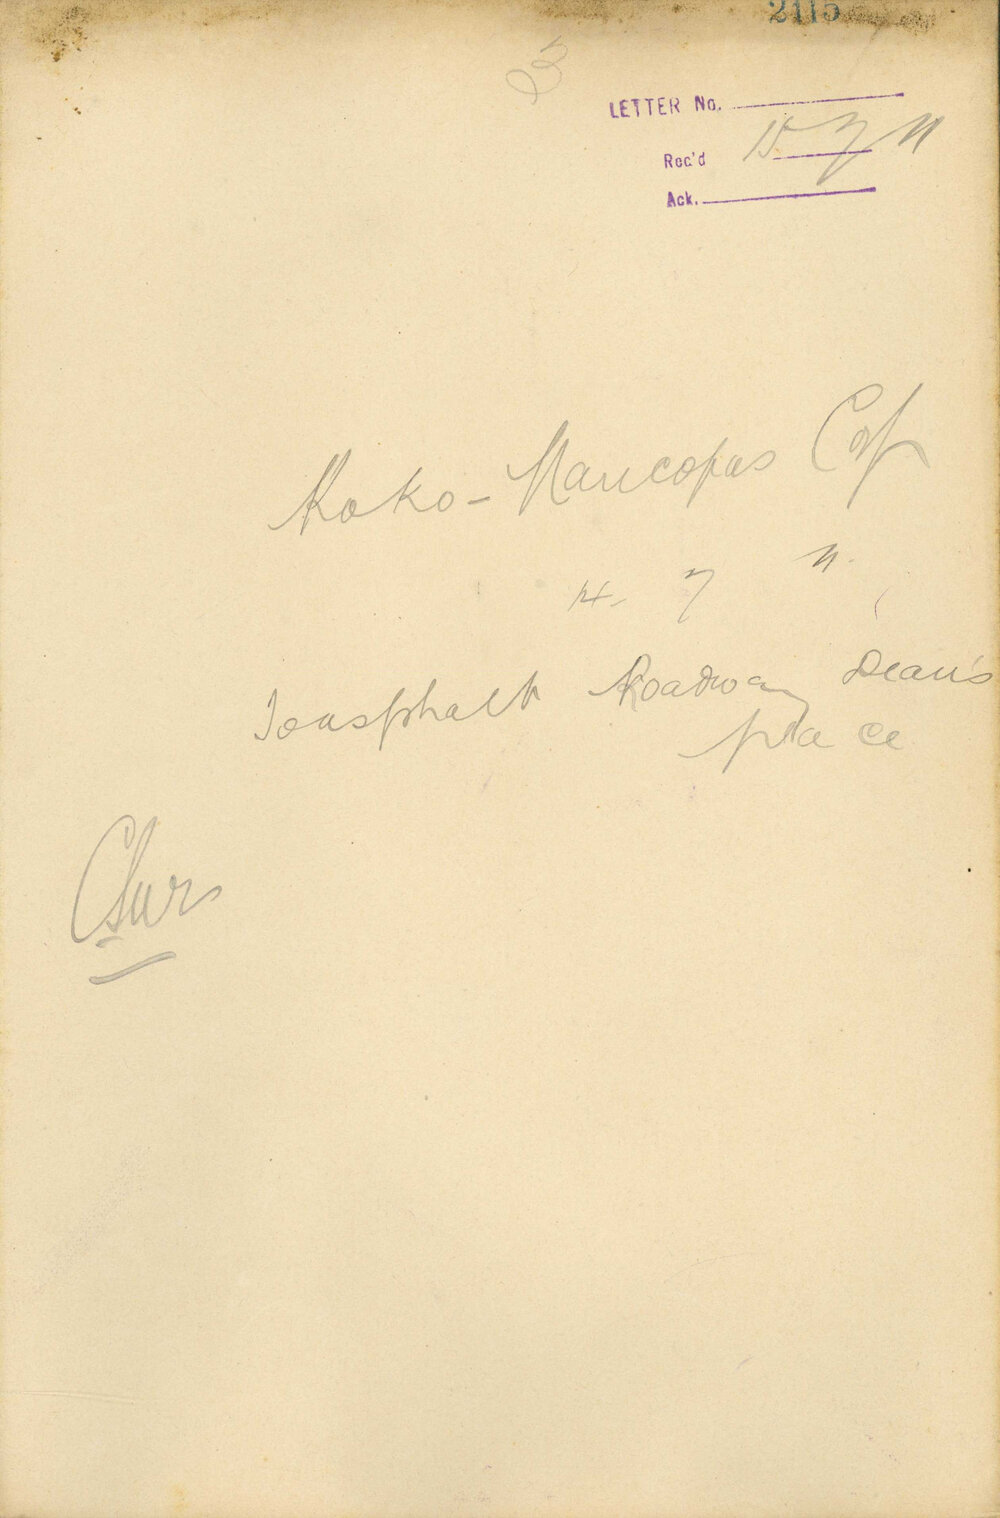 2115
LETTER No.
Rec'd 15 7 11
Ack.
Koko-Maricopas Co
14. 7 11.
To asphalt Roadway Dean's
place
C Sur